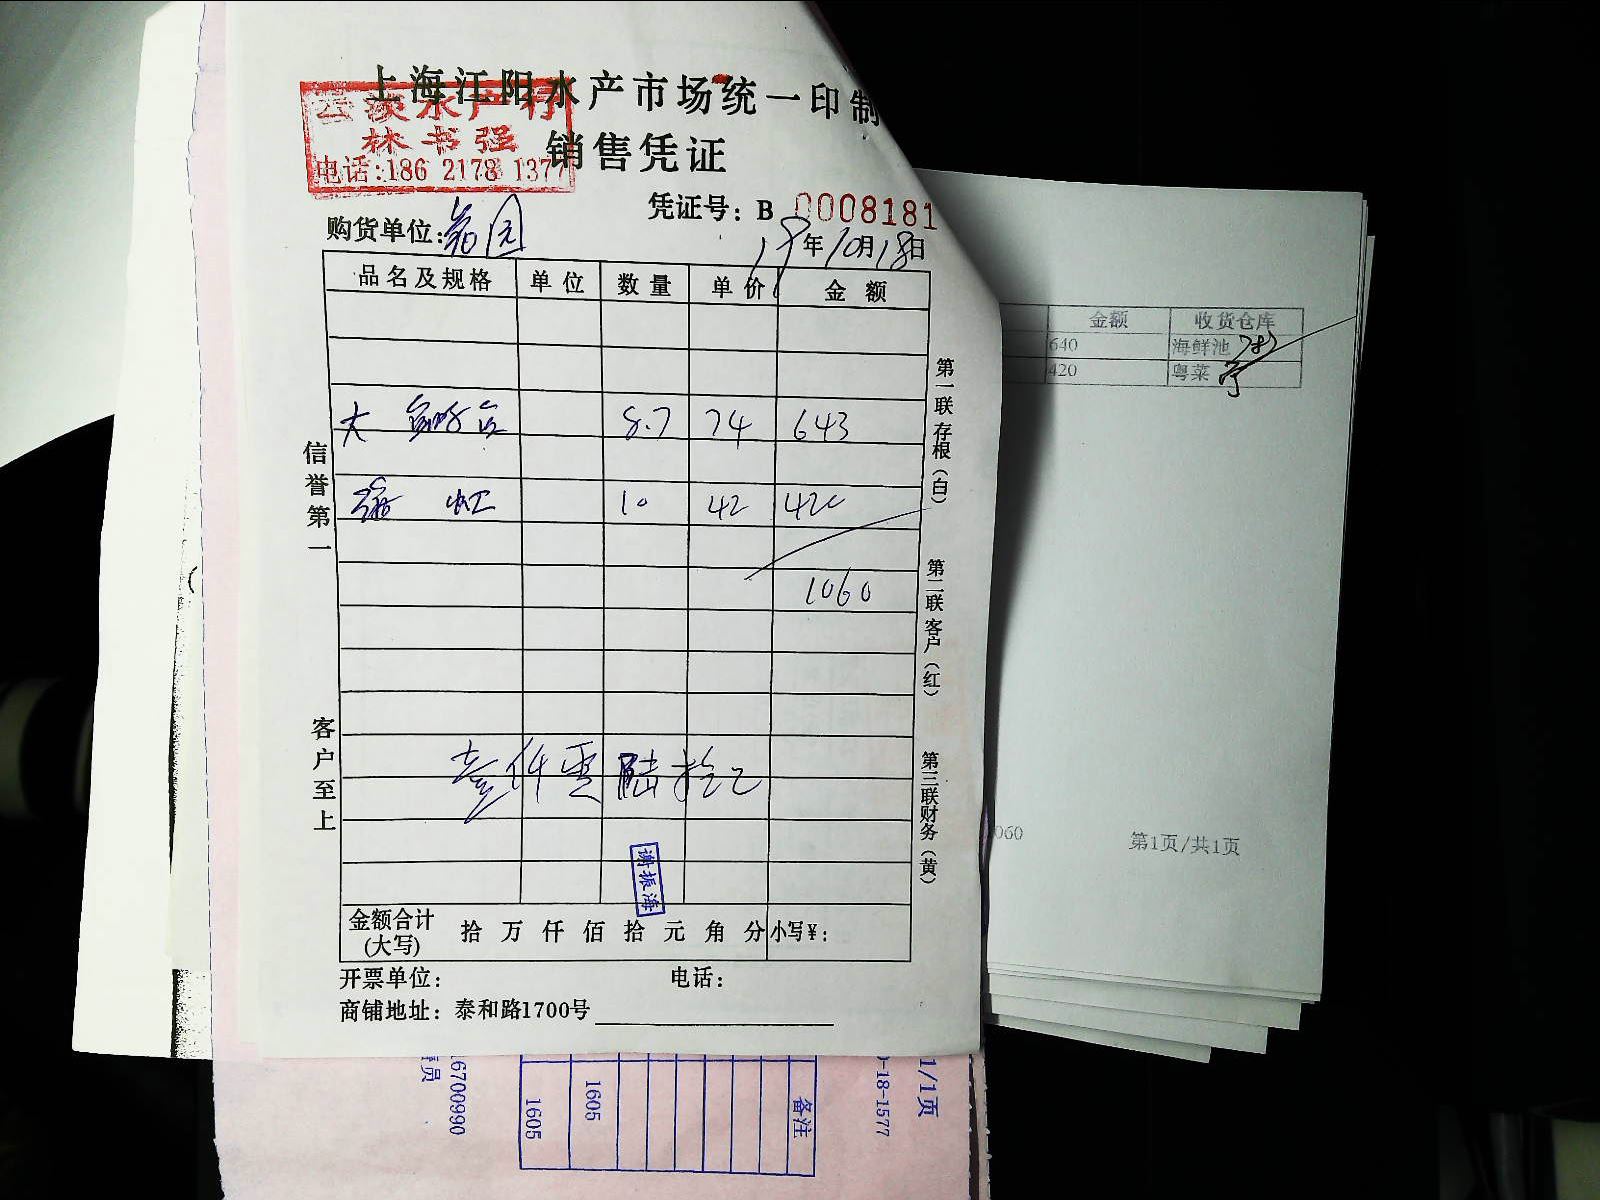 上海江阳水产市场统一印制
水产行
林书强
电话:186 2178 1377
销售凭证
凭证号: B 0008181
购货单位: 园 18年10月18日
品名及规格 单位 数量 单价 金额
大 8.7 74 643
10 42 420
1060
壹仟零陆拾元
谢振海
金额合计(大写) 拾 万 仟 佰 拾 元 角 分 小写¥:
开票单位: 电话:
商铺地址: 泰和路1700号
信誉第一
客户至上
第一联存根(白)
第二联客户(红)
第三联财务(黄)
金额 收货仓库
640 海鲜池
420 粤菜
060 第1页/共1页
1/1页
-18-1577
备注
1605
1605
16700990
员